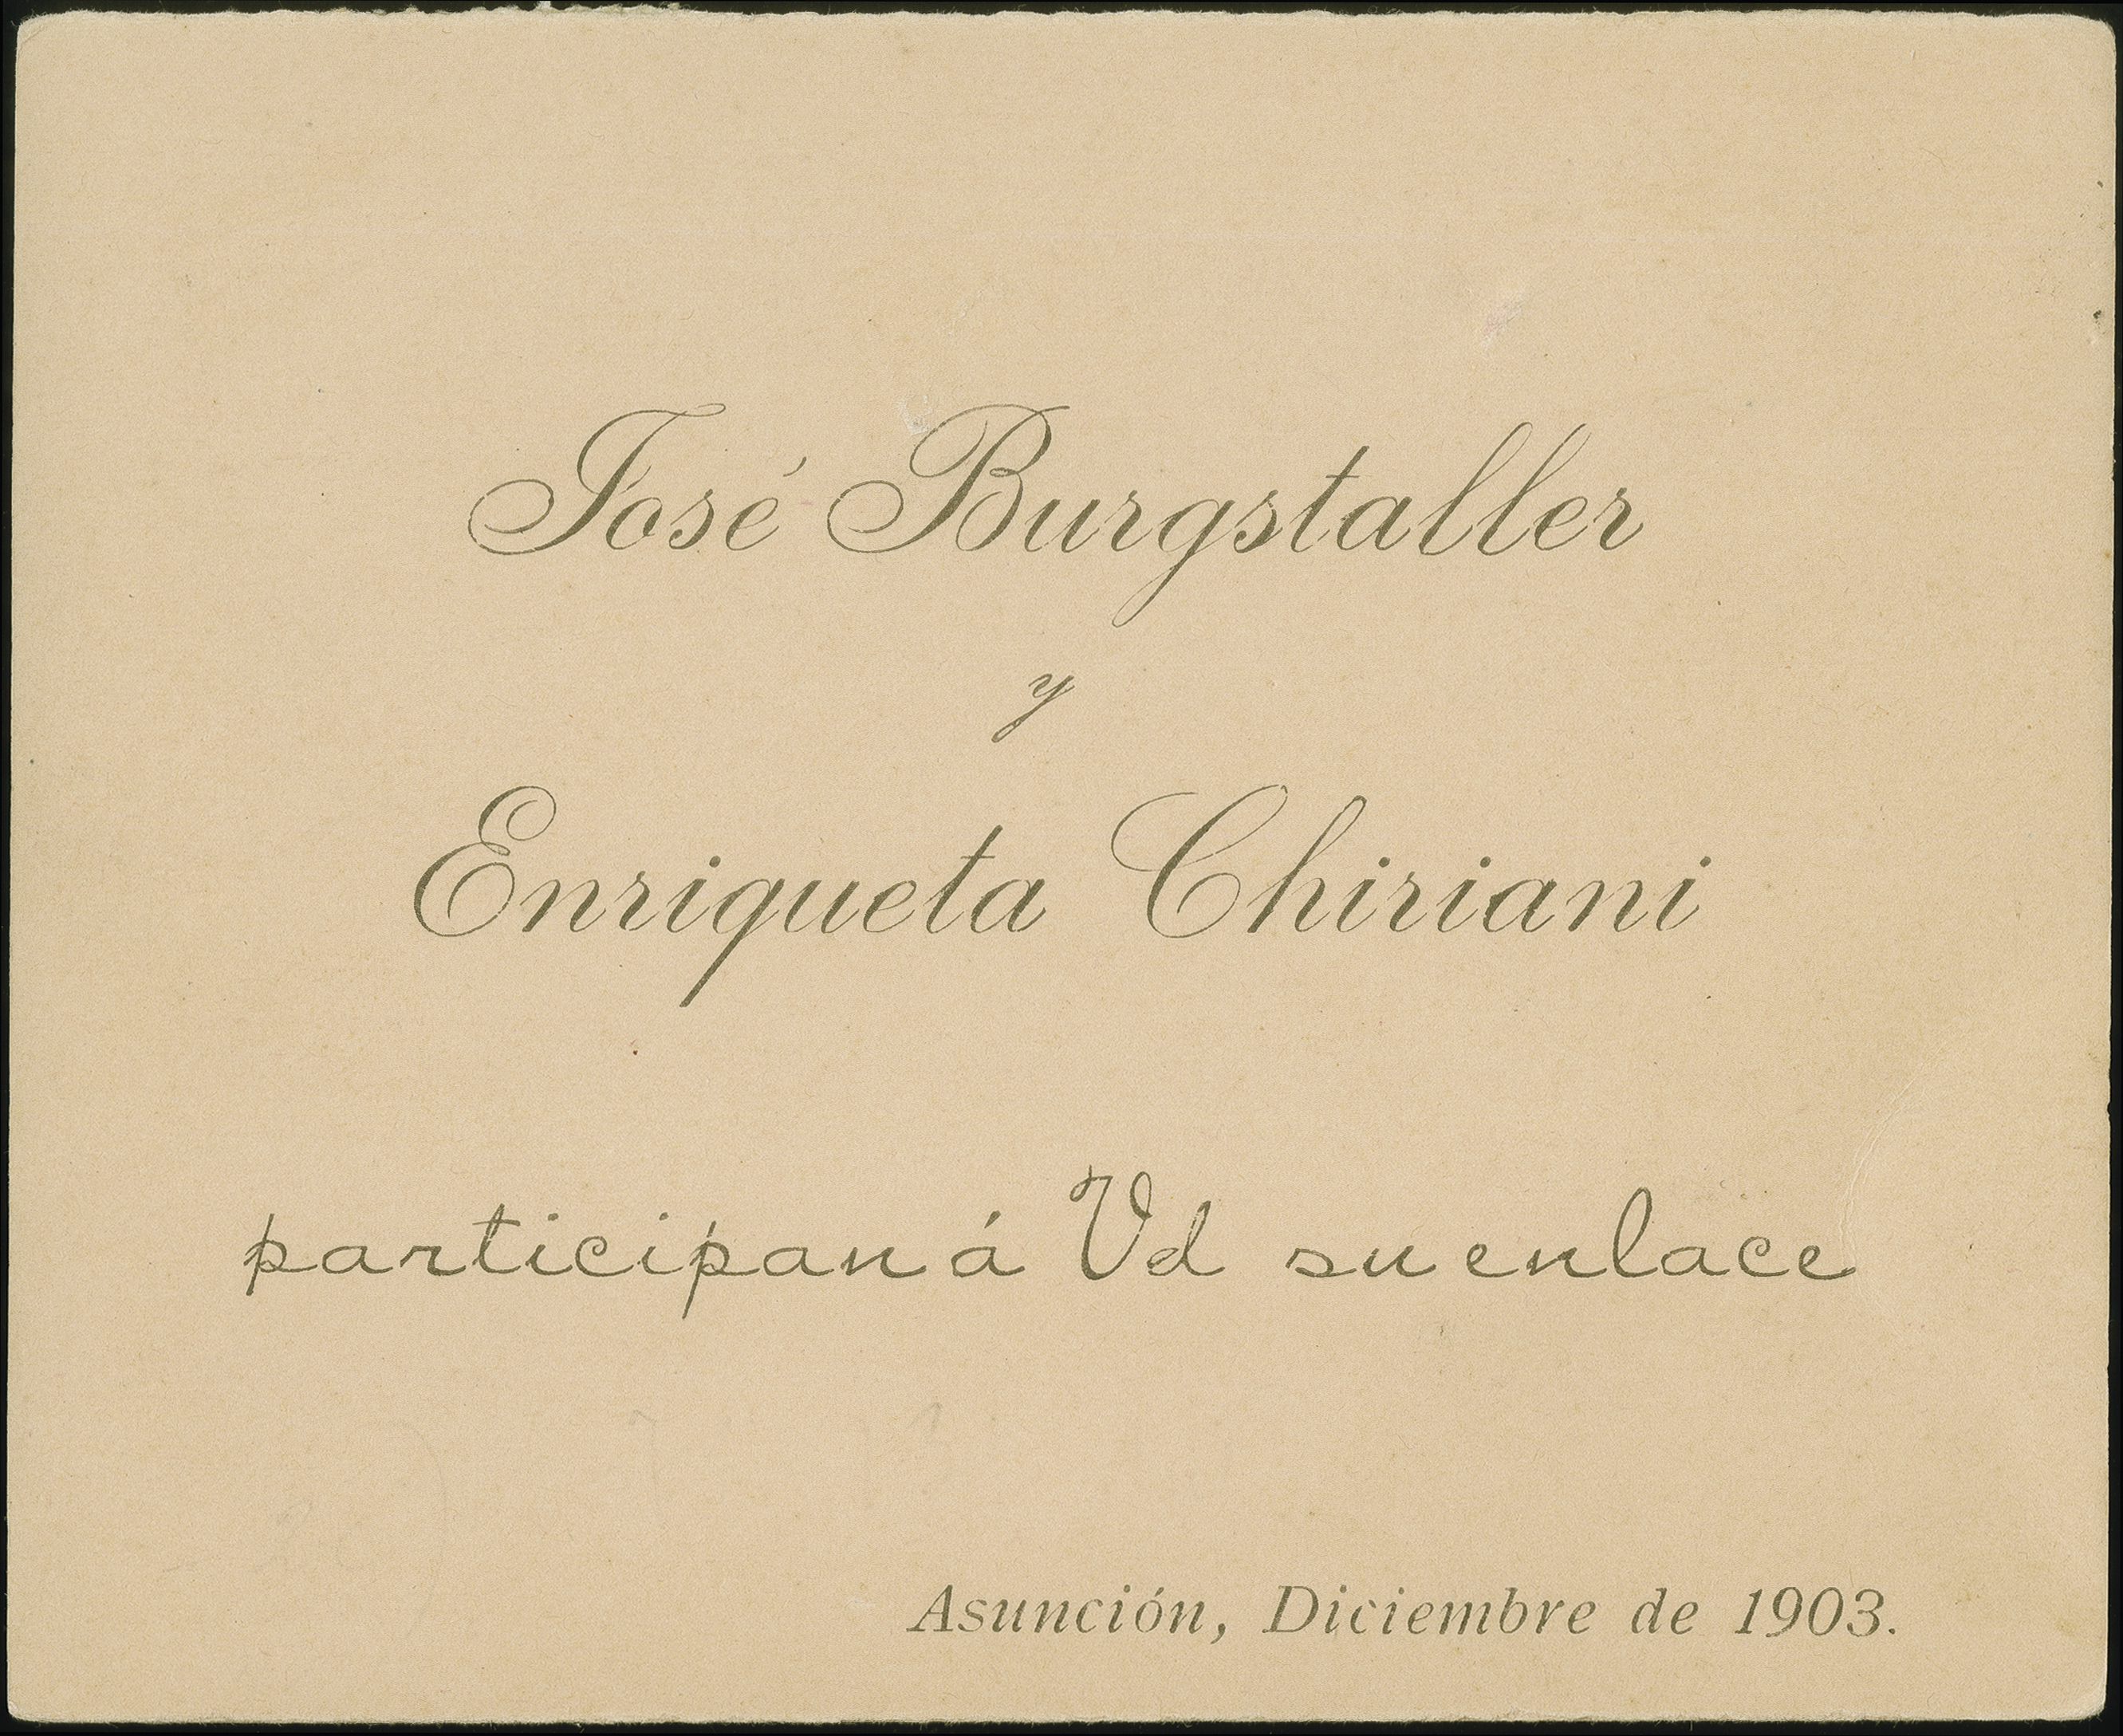 José Burgstaller
y
Enriqueta Chiriani
participan á Vd su enlace
Asunción, Diciembre de 1903.